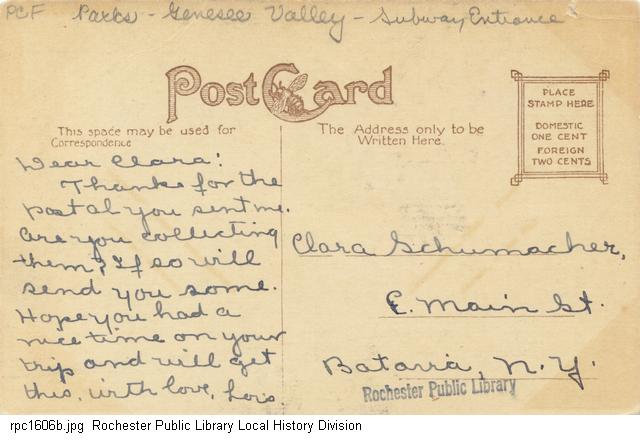 PCF Parks - Genesee Valley - Subway Entrance
Post Card
This space may be used for
Correspondence
The Address only to be
Written Here.
PLACE
STAMP HERE
DOMESTIC
ONE CENT
FOREIGN
TWO CENTS
Dear Clara:
Thanks for the
postal you sent me.
Are you collecting
them? If so will
send you some.
Hope you had a
nice time on your
trip and will get
this, with love, Lois
Clara Schumacher,
E. Main St.
Batavia, N.Y.
Rochester Public Library
rpc1606b.jpg Rochester Public Library Local History Division